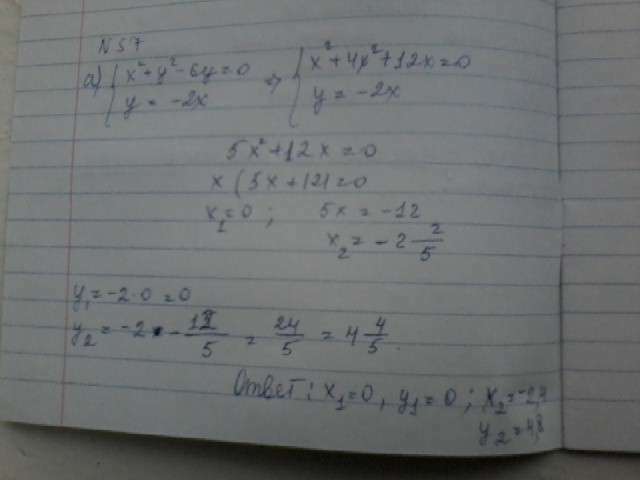 N 57
а) { x² + y² - 6y = 0 ⇒ { x² + 4x² + 12x = 0
y = -2x y = -2x
5x² + 12x = 0
x (5x + 12) = 0
x₁ = 0 ; 5x = -12
x₂ = -2 2/5
y₁ = -2 · 0 = 0
y₂ = -2 · - 12/5 = 24/5 = 4 4/5
Ответ: x₁ = 0, y₁ = 0 ; x₂ =
y₂ =